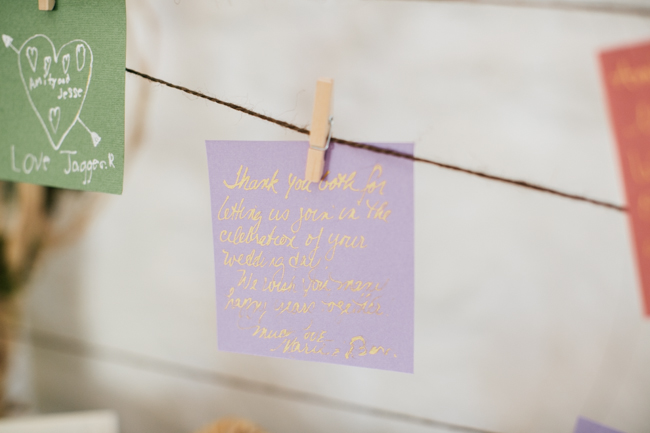 Amity and
Jesse
Love Jagger.R
Thank you both for
letting us join in the
celebration of your
wedding day.
We wish you many
happy years together
Much love